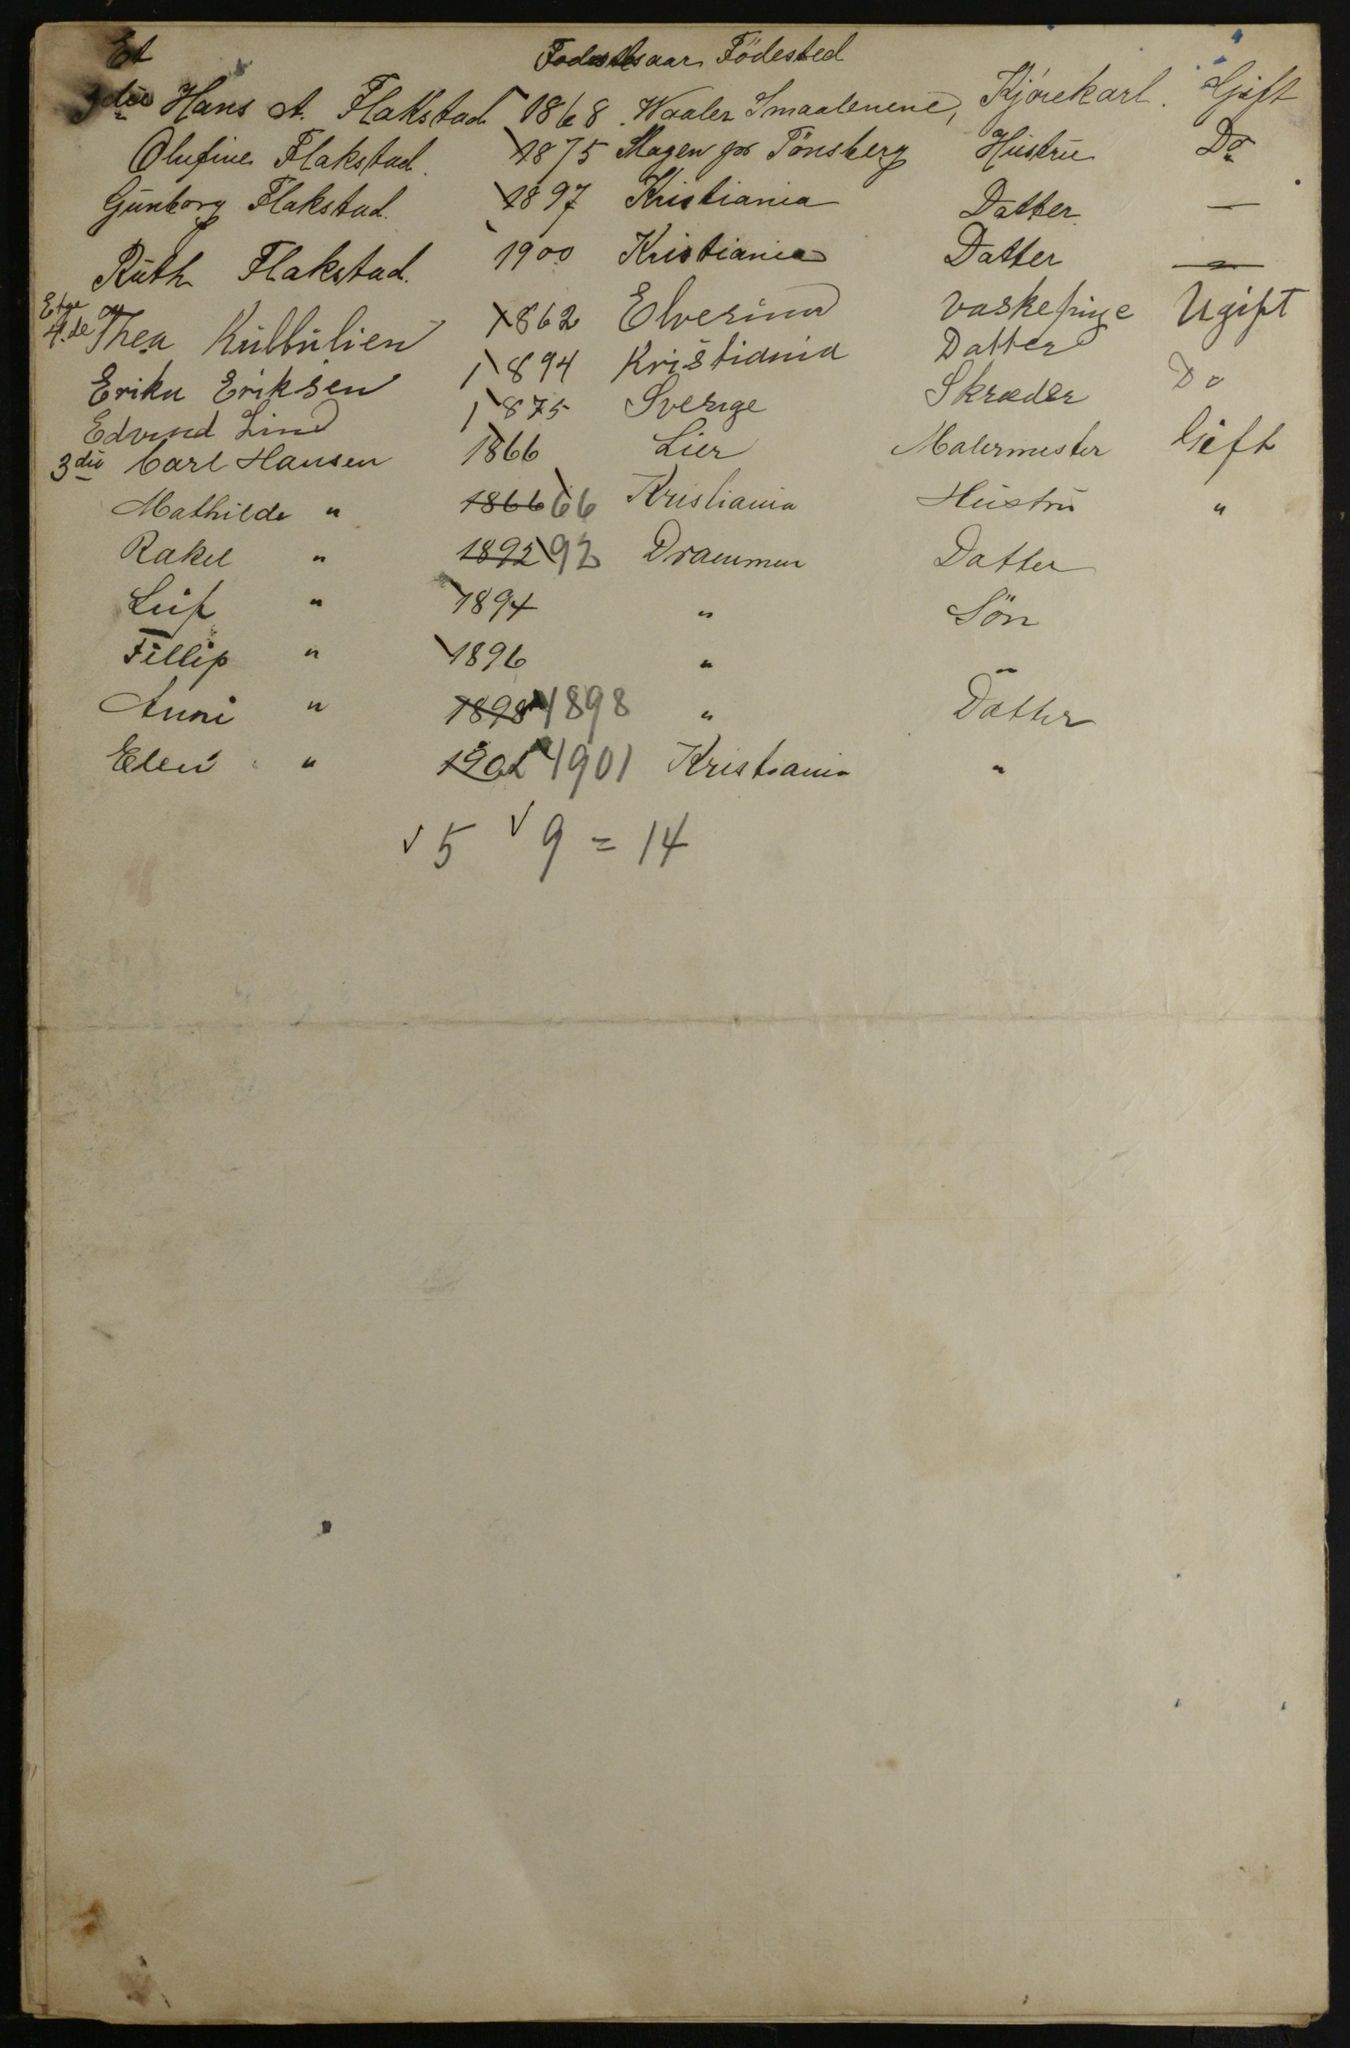 Et Fødselsaar Födested
3die Hans A. Flakstad 1868 Waaler Smaalenene, Kjørekarl. Gift
Olufine Flakstad. 1875 Slagen pr Tönsberg Hustru Do
Gunborg Flakstad. 1897 Kristiania Datter —
Ruth Flakstad. 1900 Kristiania Datter —
Etge 4.de Thea Kulbulien 1862 Elverum vaskepige Ugift
Erika Eriksen 1894 Kristiania Datter Do
Edvind Lind 1875 Sverige Skræder
3die Carl Hansen 1866 Lier Malermester Gift
Mathilde " 1866 66 Kristiania Hustru "
Rakel " 1892 92 Drammen Datter
Leif " 1894 " Sön
Fillip " 1896 " "
Anni " 1898 1898 " Datter
Elen " 1901 1901 Kristiania "
√ 5 √ 9 = 14